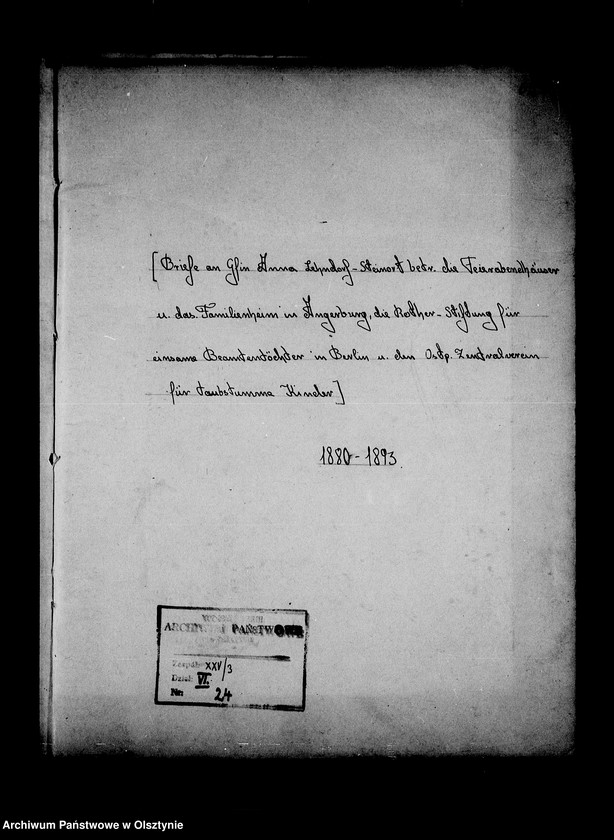 [Briefe an Gfin Anna Lehndorf-Steinort betr. die Feierabendhäuser
u. das Familienheim in Angerburg, die Rother-Stiftung für
einsame Beamtentöchter in Berlin u. den Ostp. Zentralverein
für taubstumme Kinder]
1880-1893
ARCHIWUM PAŃSTWOWE
Zespół: XXV/3
Dział: VI.
Nr: 24
Archiwum Państwowe w Olsztynie